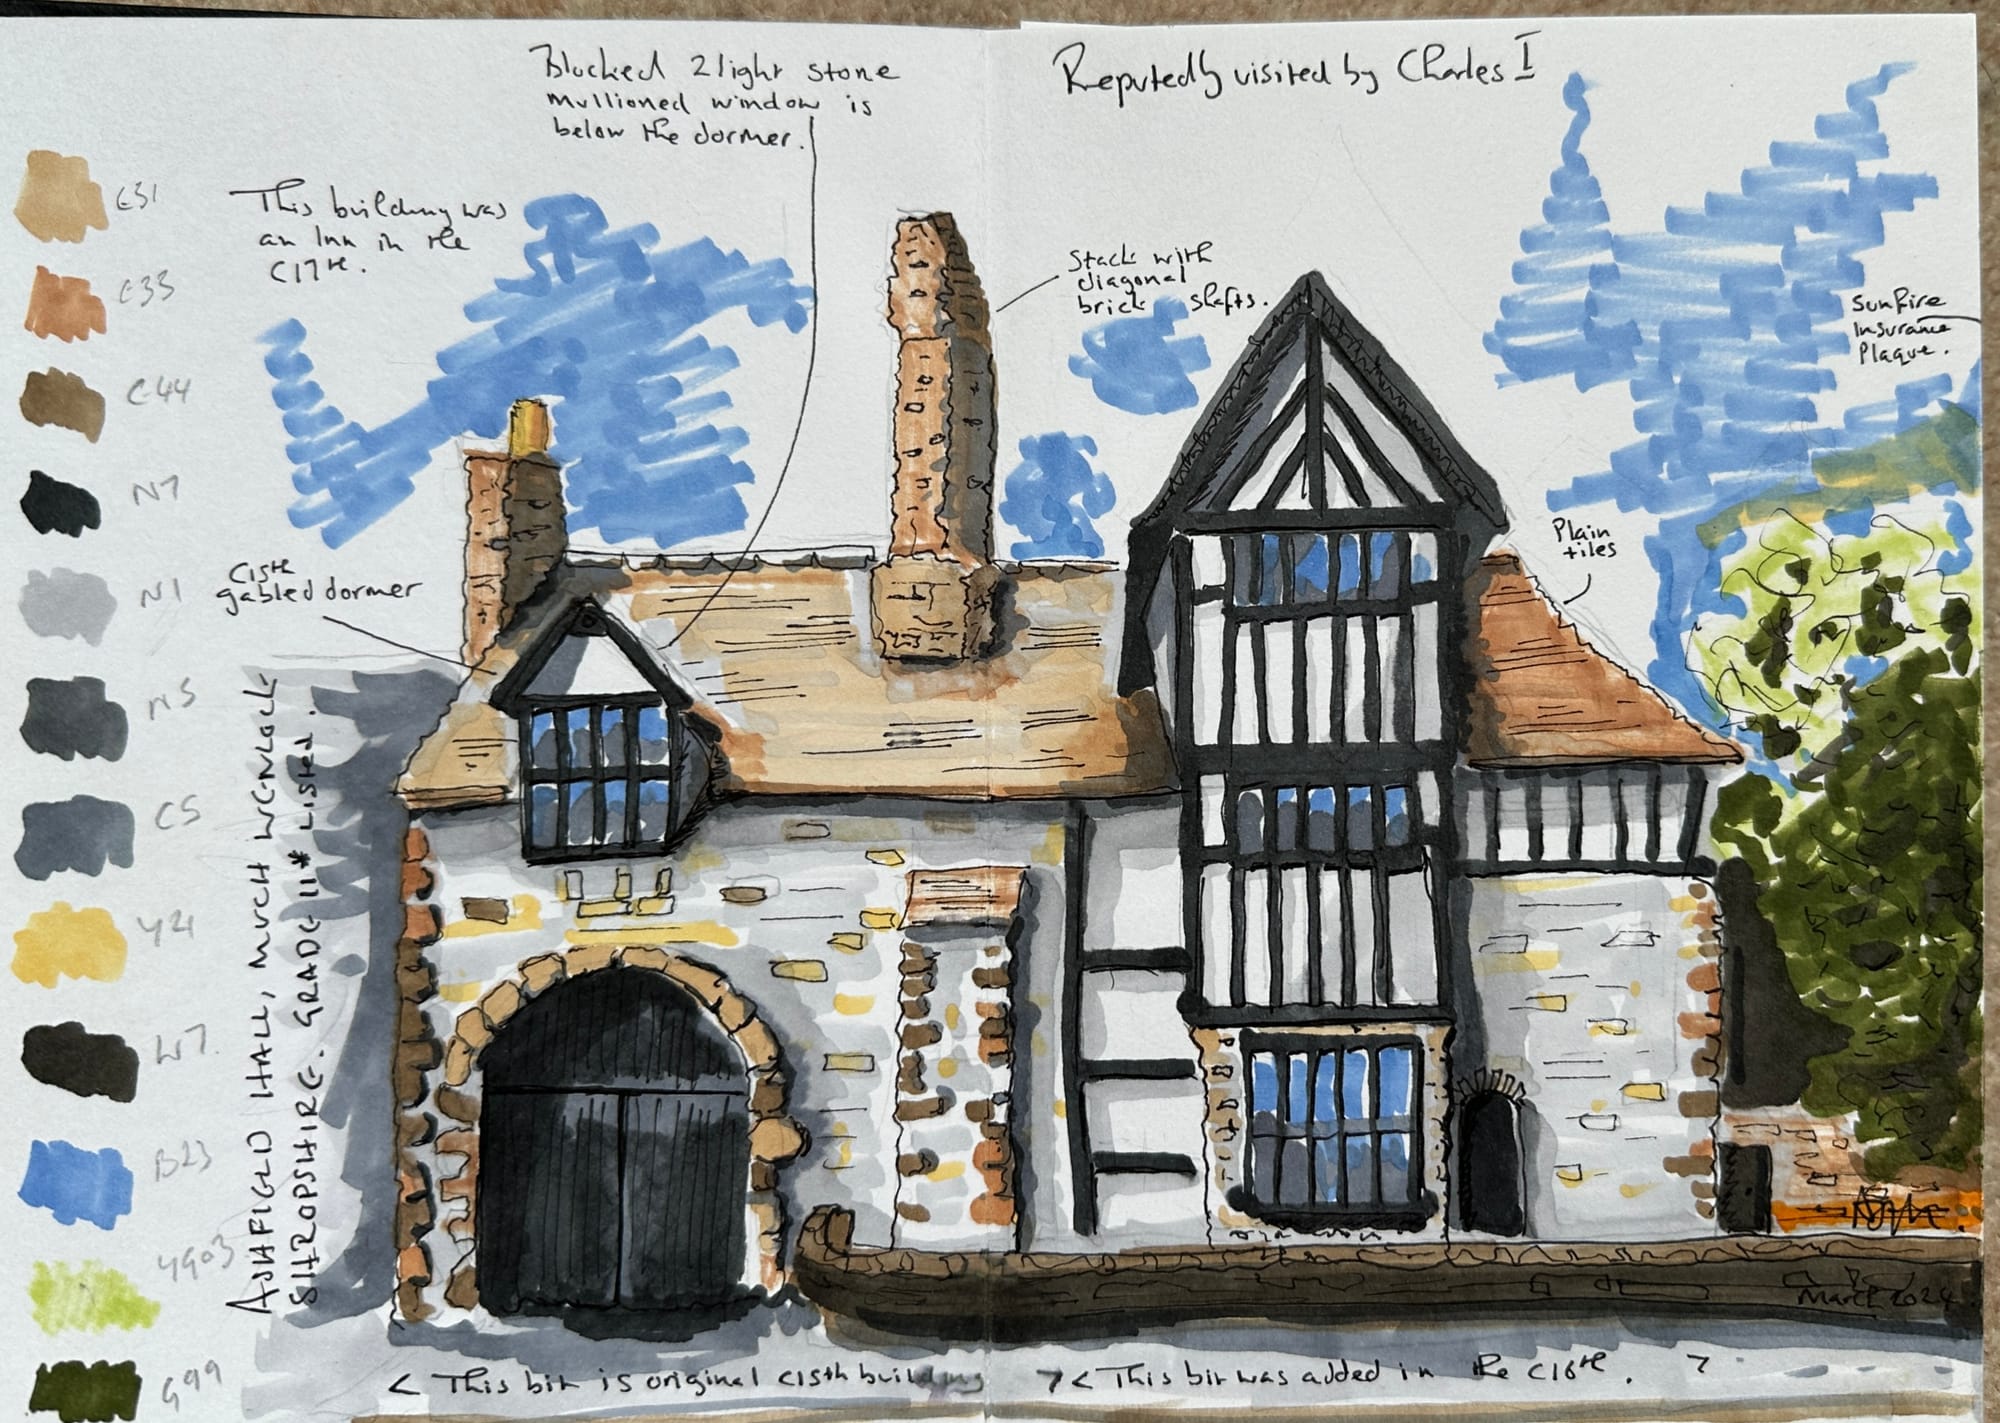 Blocked 2 light stone
mullioned window is
below the dormer.
Reputedly visited by Charles I
This building was
an Inn in the
C17th.
Stack with
diagonal
brick shafts.
Sunfire
Insurance
Plaque.
Plain
tiles
C15th
gabled dormer
ASHFIELD HALL, MUCH WENLOCK
SHROPSHIRE. GRADE II* LISTED.
E31
E33
E44
N7
N1
N5
C5
Y21
W7
B23
YG03
G99
March 2024
< This bit is original C15th building >
< This bit was added in the C16th. >